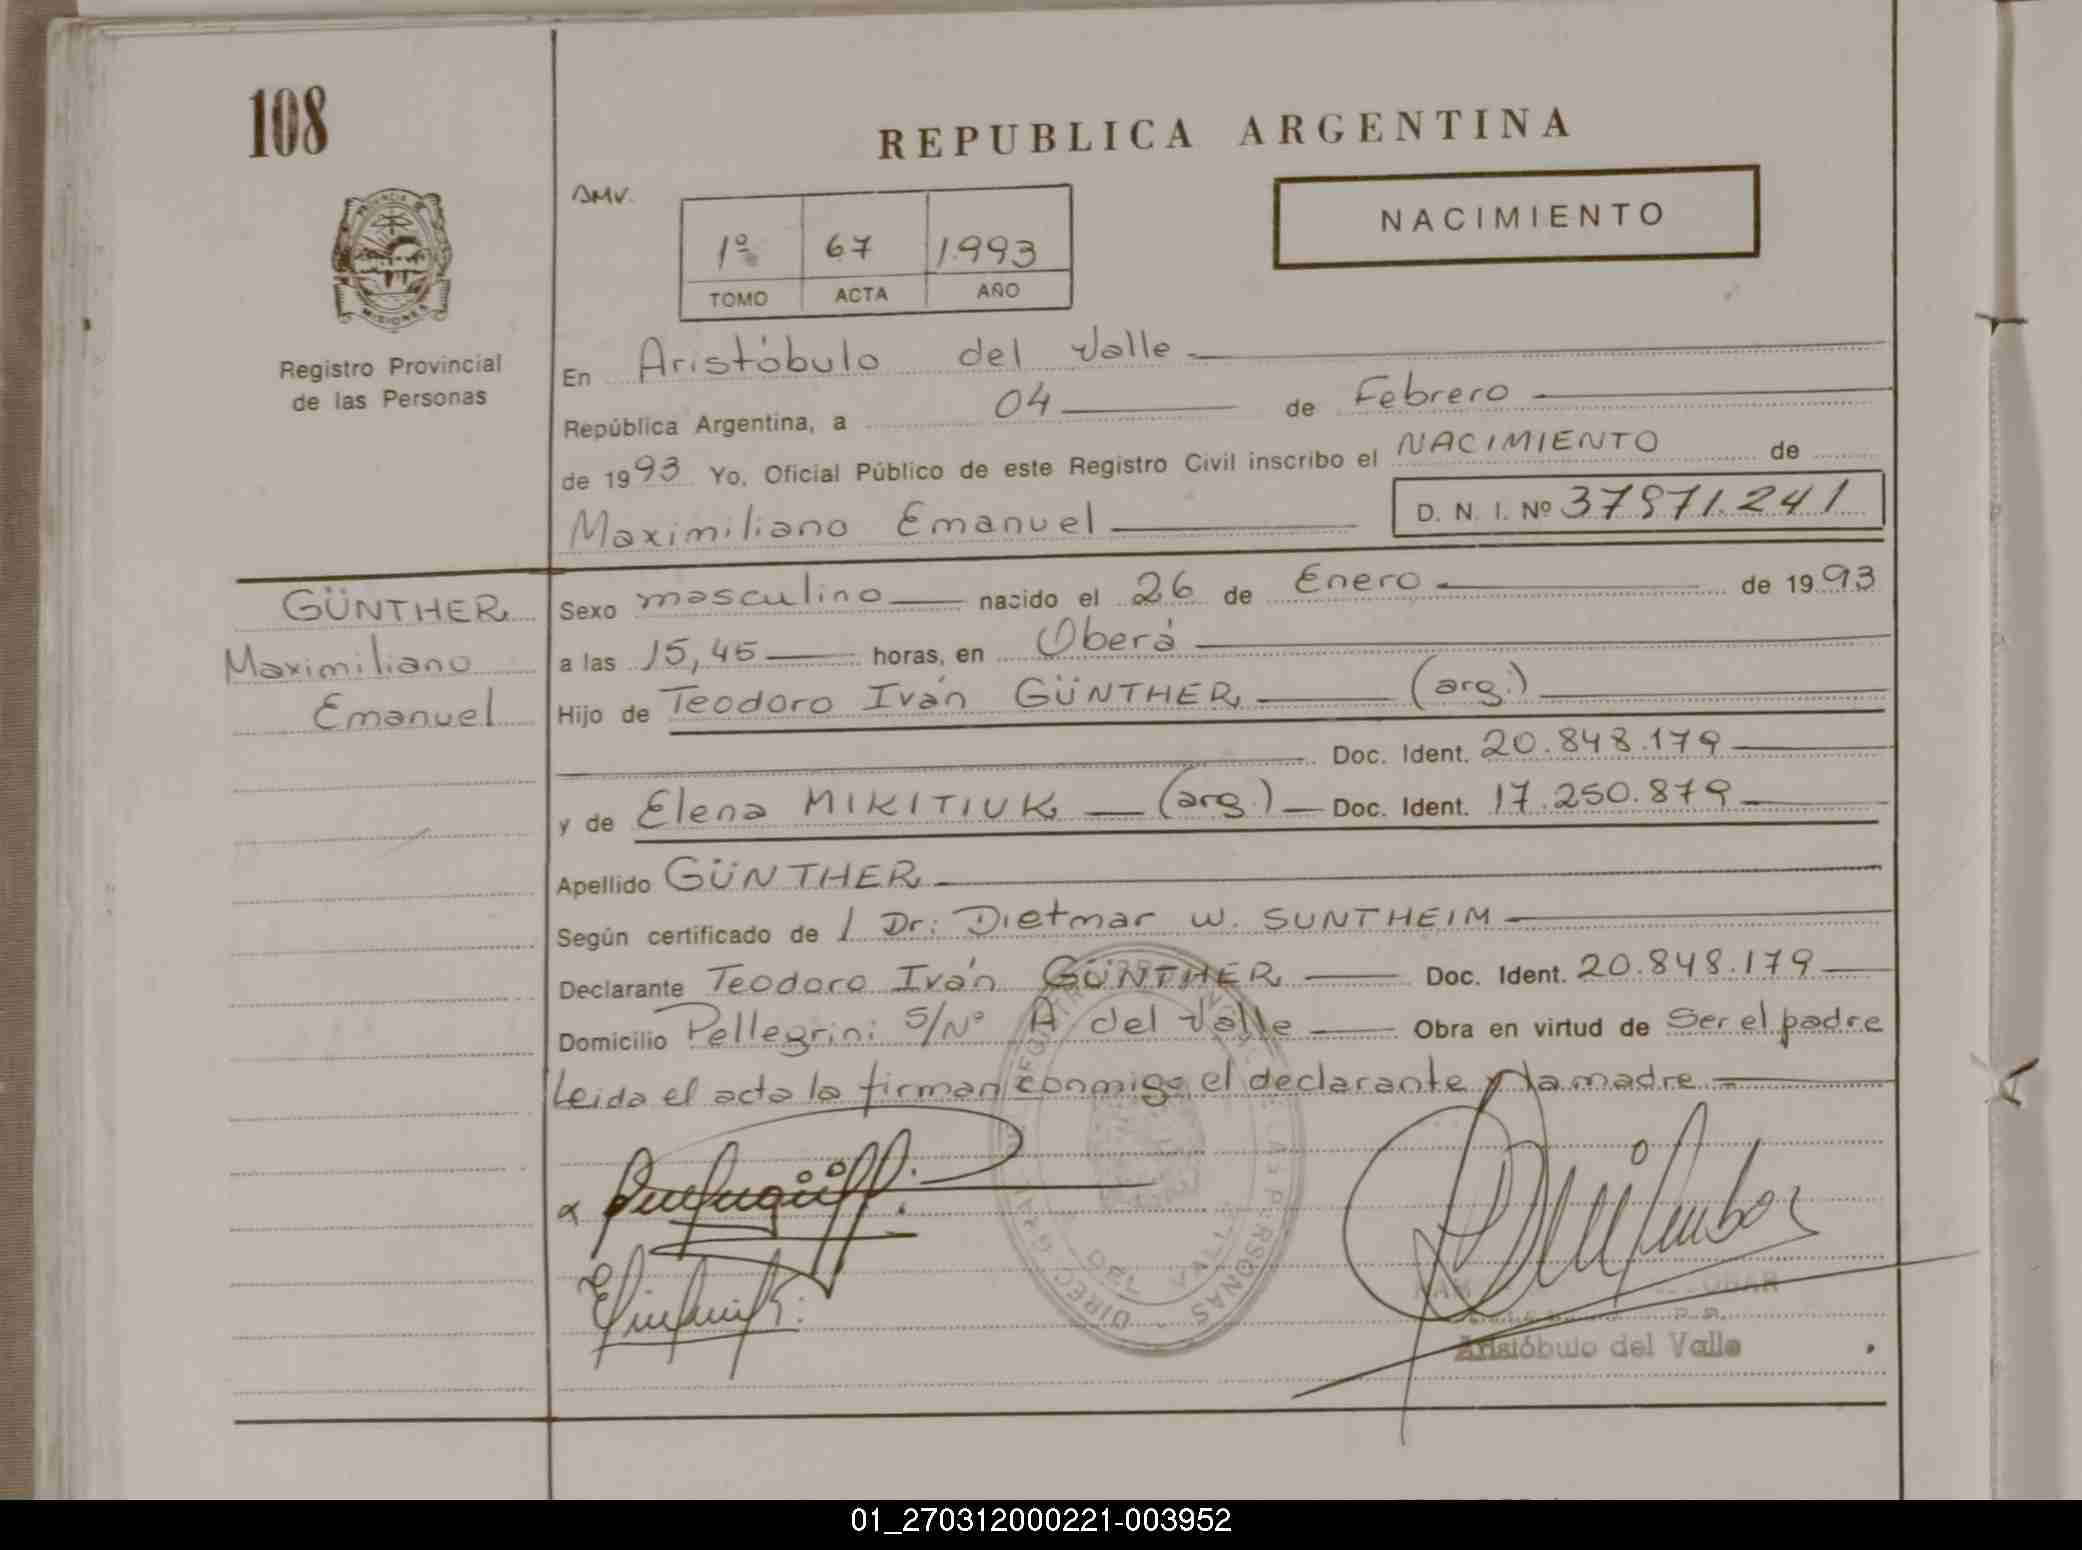 108
REPUBLICA ARGENTINA
NACIMIENTO
1º 67 1.993
TOMO ACTA AÑO
PROVINCIA DE
MISIONES
Registro Provincial
de las Personas
En Aristóbulo del Valle
República Argentina, a 04 de Febrero
de 1993 Yo, Oficial Público de este Registro Civil inscribo el NACIMIENTO de
Maximiliano Emanuel D. N. I. Nº 37871.241
GÜNTHER
Maximiliano
Emanuel
Sexo masculino nacido el 26 de Enero de 1993
a las 15,45 horas, en Oberá
Hijo de Teodoro Iván GÜNTHER (arg.)
Doc. Ident. 20.848.179
y de Elena MIKITIUK (arg.) Doc. Ident. 17.250.879
Apellido GÜNTHER
Según certificado de l Dr: Dietmar W. SUNTHEIM
Declarante Teodoro Iván GÜNTHER Doc. Ident. 20.848.179
Domicilio Pellegrini S/Nº A del Valle Obra en virtud de Ser el padre
Leida el acta la firman conmigo el declarante y la madre
DEL VALLE
Aristóbulo del Valle
01_270312000221-003952